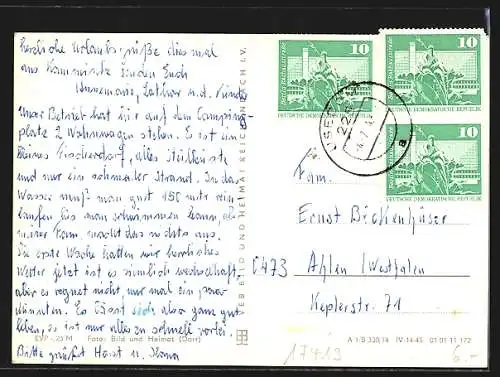 herzliche Urlaubsgrüße dies mal
aus Kamminke senden Euch
Lothar u. d. Kinder
Unser Betrieb hat hier auf dem Camping-
platz 2 Wohnwagen stehen. Es ist ein
kleines Fischerdorf, alles Steilküste
und nur ein schmaler Strand. In das
Wasser muß man gut 150 mtr rein
laufen bis man schwimmen kann, ab
macht das nichts aus.
Die erste Woche hatten wir herrliches
Wetter jetzt ist es ziemlich wechselhaft
aber es regnet nicht nur mal ein paar
Minuten. Es lässt sich also ganz gut
leben, es ist nur alles zu schnell vorbei.
Bitte grüßt Horst u. Ilona
EVP -,20 M Foto: Bild und Heimat (Darr)
VEB BILD UND HEIMAT REICHENBACH I. V.
10
Berlin, Rathausstraße
DEUTSCHE DEMOKRATISCHE REPUBLIK
10
DEUTSCHE DEMOKRATISCHE REPUBLIK
10
DEUTSCHE DEMOKRATISCHE REPUBLIK
a
Fam.
Ernst Bickenhüser
C473 Ahlen/Westfalen
Keplerstr. 71
A 1/B 338/74 IV-14-45 01 01 11 172
17419
6.-